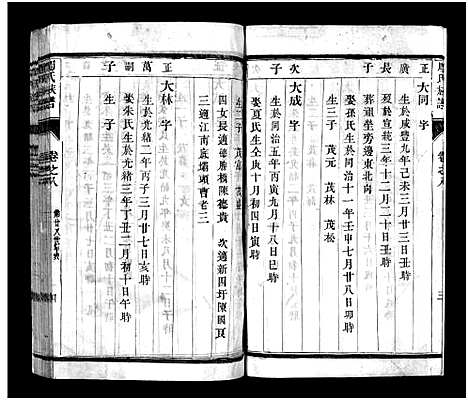 周氏族譜
卷之八
三
正 廣 長 子
大同 字
生於咸豐九年己未三月廿三日丑時
歿於宣統三年十二月二十日丑時
葬祖坐旁邊東北向
娶孫氏生於同治十一年壬申七月廿八日丑時
生三子 茂元 茂林 茂松
次 子
大成 字
生於同治五年丙寅九月十八日巳時
娶夏氏生仝庚十月初四日寅時
生三子
四女長適德唐橋陳德貴 次適新四圩陳國良
三適江南底壩頭曹老三
正 萬 嗣 子
大林 字
生於光緒二年丙子三月廿七日亥時
娶朱氏生於光緒三年丁丑二月初十日午時
生子
卷之八